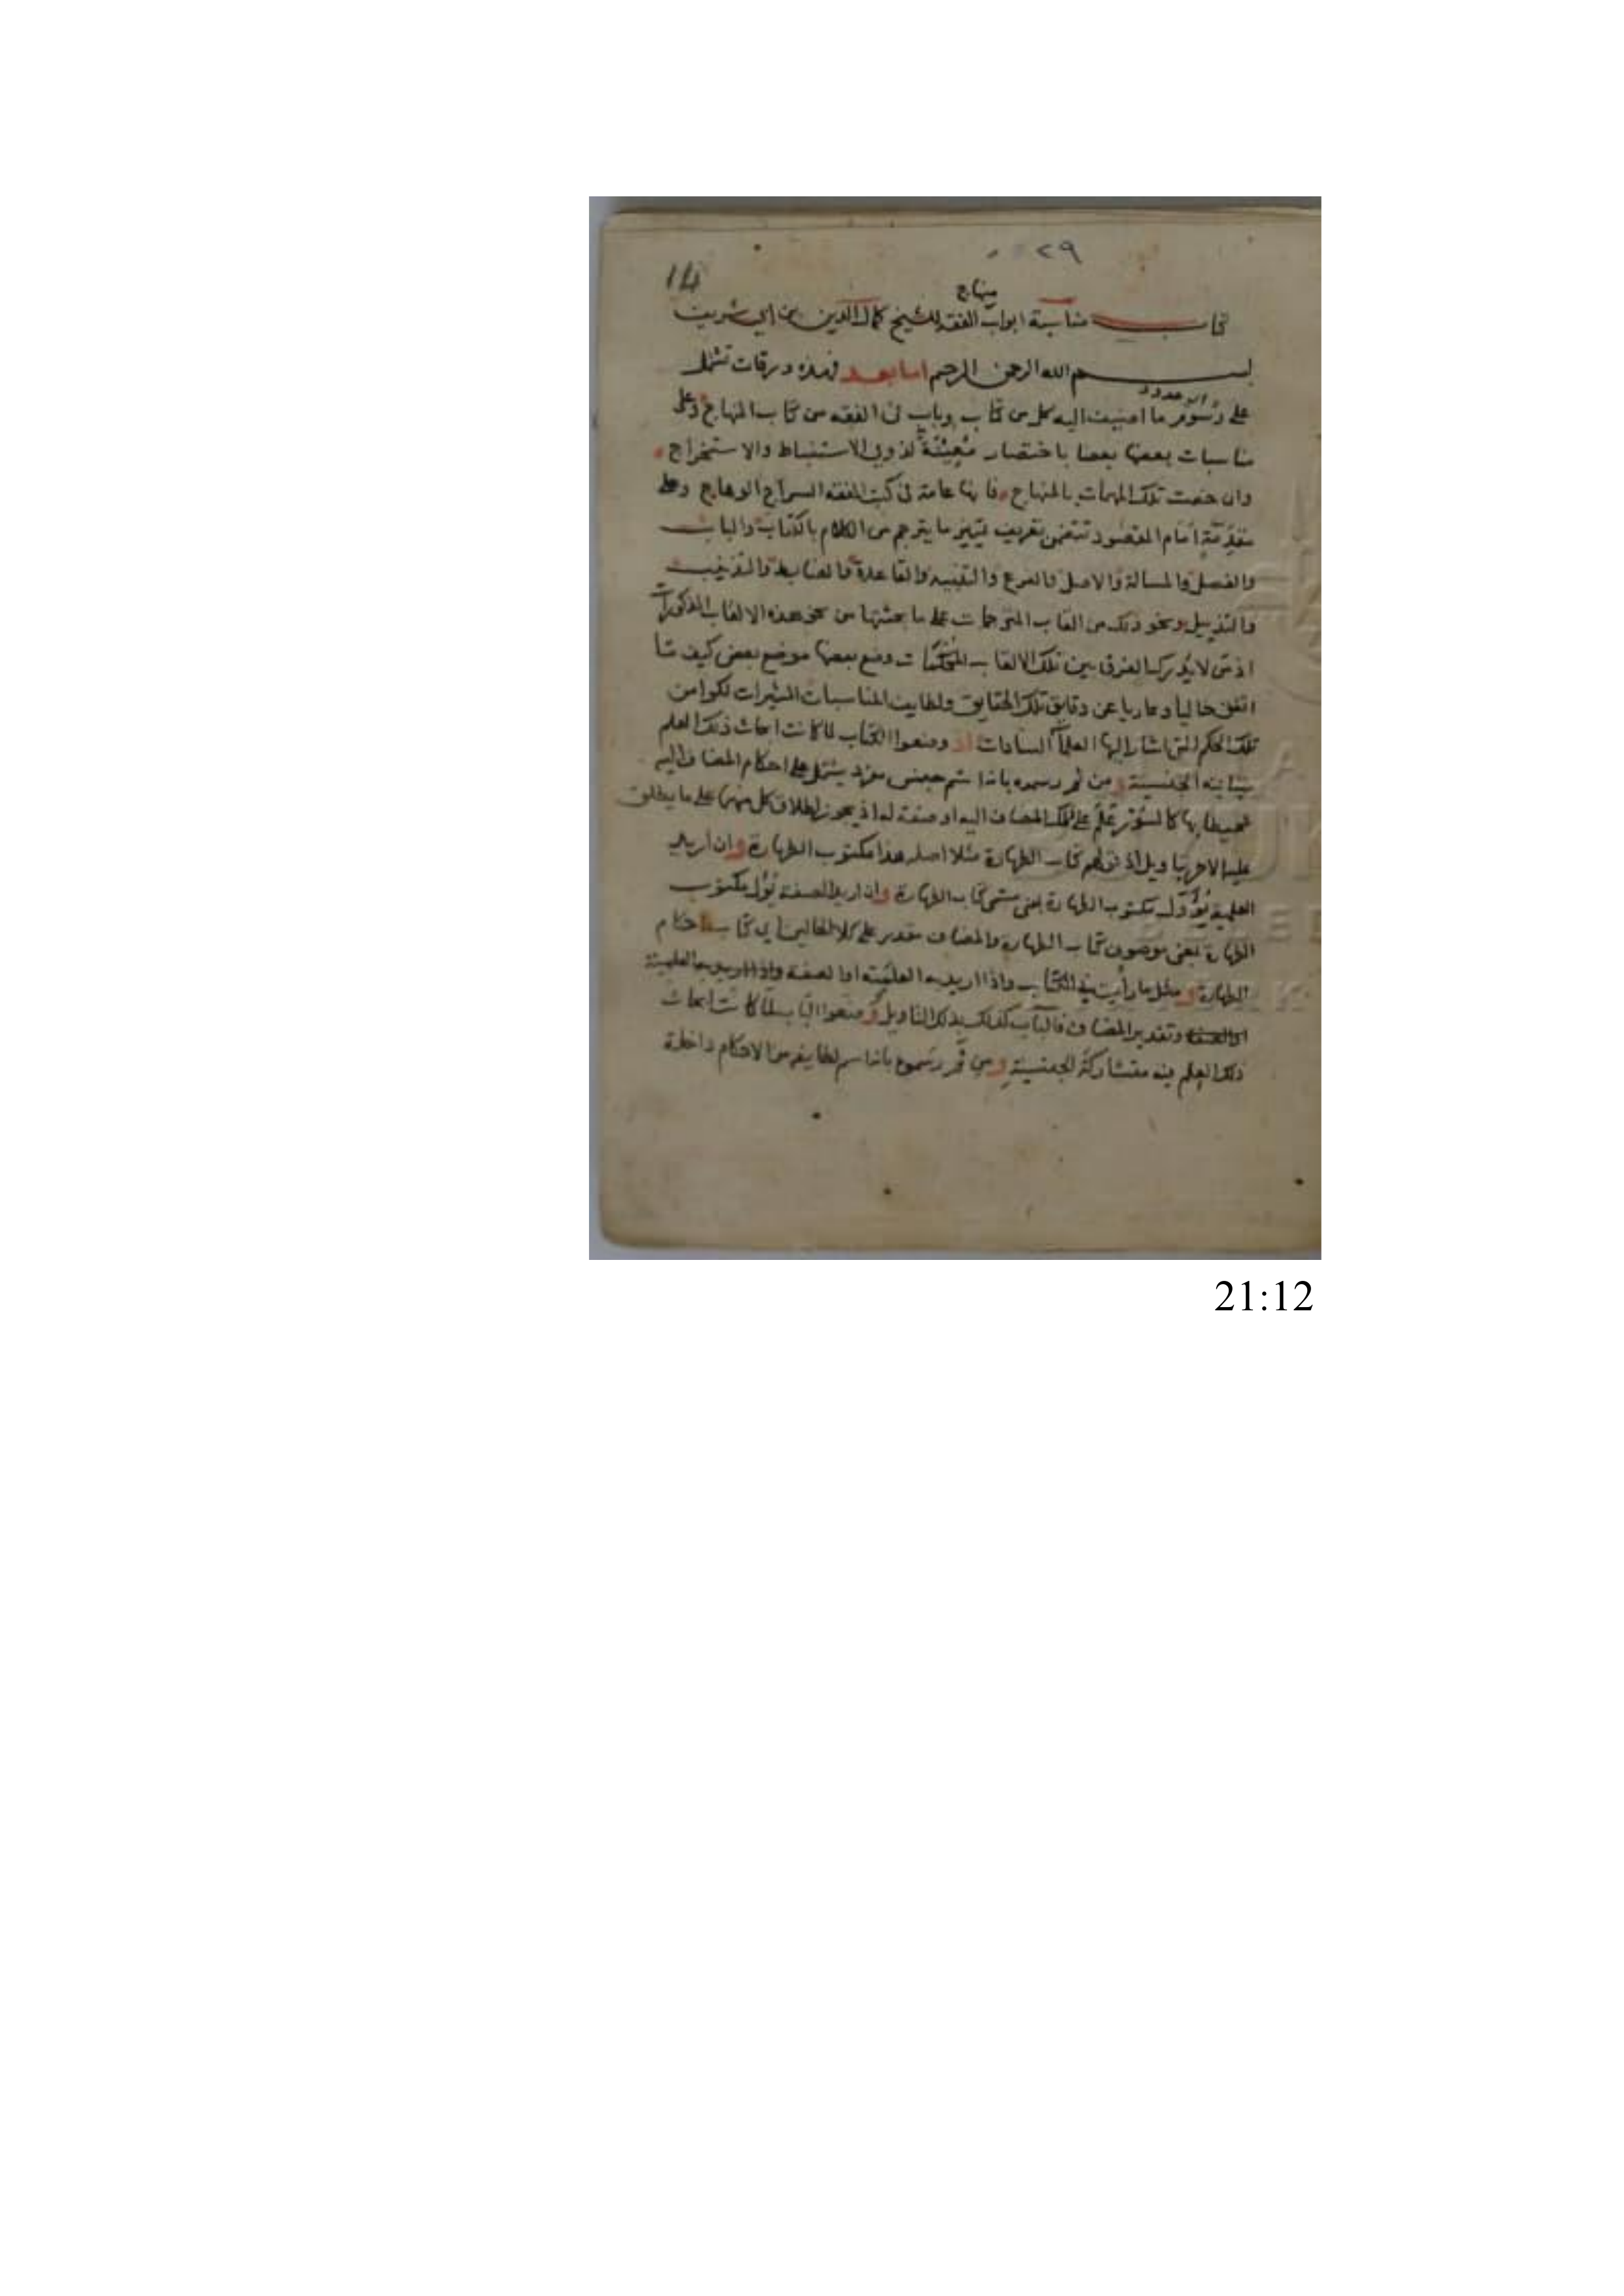 ٢٩
14
منهاج
كتاب مناسبة ابواب الفقه للشيخ كمال الدين بن ابي شريف
بسم الله الرحمن الرحيم اما بعد فهذه ورقات تشمل
او حدود
على رسوم ما اضيف اليه كل من كتاب وباب في الفقه من كتاب المنهاج وعلى
مناسبات بعضها بعضا باختصار معينة لذوي الاستنباط والاستخراج
وان خصت تلك المهمات بالمنهاج فانها عامة في كتب الفقه السراج الوهاج وعلى
مقدمة امام المقصود تتضمن تعريف تمييز ما يترجم من الكلام بالكتاب والباب
والفصل والمسالة والاصل والفرع والتنبيه والقاعدة والضابط والتذنيب
والتذييل ونحو ذلك من القاب المترجمات على ما بعثها من نحو هذه الالقاب المذكورات
اذ من لا يدرك الفرق بين تلك الالقاب وضع بعضها موضع بعض كيف شا
اتفق خاليا وعاريا عن دقايق تلك الحقايق ولطايف المناسبات المشيرات لكوامن
تلك الحكم التي اشار اليها العلما السادات اذ وضعوا الكتاب لما كانت ابحاث ذلك العلم
الجنسية ومن ثم رسموه بانه اسم جنس مفرد يشتمل على احكام المضاف اليه
محيط بها علم على تلك المضاف اليه او صفة له اذ يجوز اطلاق كل منهما على ما يطلق
عليه الاخر بتاويل اذ قولهم كتاب الطهارة مثلا اصله هذا مكتوب الطهارة وان اريد
العلمية يؤول مكتوب الطهارة بمعنى مسمى كتاب الطهارة وان اريد الصفة يؤول مكتوب
الطهارة بمعنى موصوف كتاب الطهارة والمضاف مقدر على كلا الحالين اي كتاب احكام
الطهارة ومثل ما رايت في الكتاب واذا اريد به العلمية او الصفة واذا اريد به العلمية
وتقدير المضاف فالباب كذلك بذلك التاويل وضعوا الباب لما كانت ابحاث
ذلك العلم فيه متشاركة الجنسية ومن ثم رسموه بانه اسم لطايفة من الاحكام داخلة
21:12